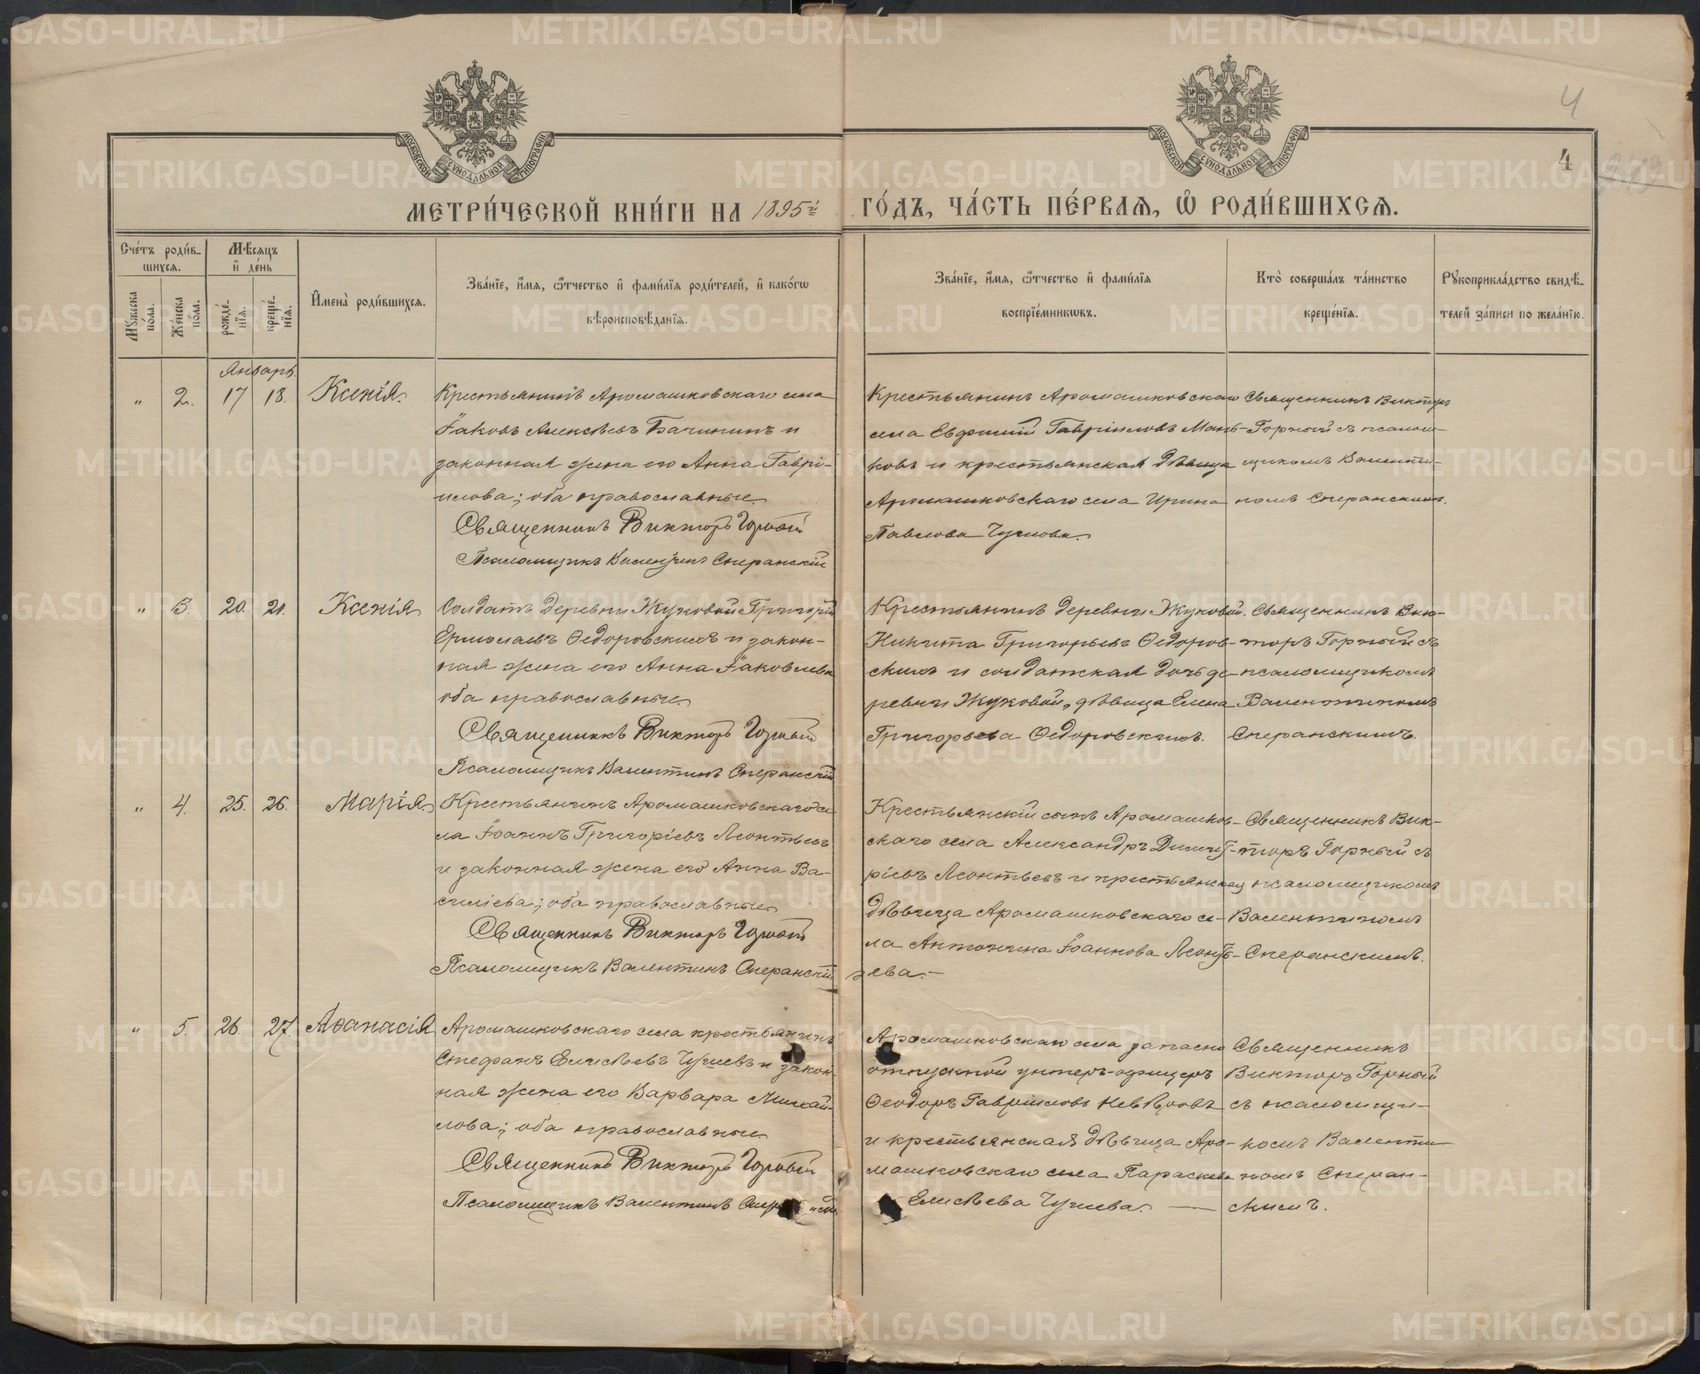 МОСКОВСКОЙ СѴНОДАЛЬНОЙ ТИПОГРАФІИ
МОСКОВСКОЙ СѴНОДАЛЬНОЙ ТИПОГРАФІИ
4
4
МЕТРИ́ЧЕСКОЙ КНИ́ГИ НА 1895й ГО́ДЪ, ЧА́СТЬ ПЕ́РВАѦ, Ѽ РОДИ́ВШИХСѦ.
Сче́тъ роди́в-
шихсѧ.
Мѣ́сѧцъ
и҆ де́нь
Мꙋ́жеска
по́ла.
Же́нска
по́ла.
рожде́-
нїѧ.
креще́-
нїѧ.
И҆мена̀ роди́вшихсѧ.
Зва́нїе, и҆́мѧ, ѻ҆́тчество и҆ фами́лїѧ роди́телей, и҆ како́гѡ
вѣроисповѣ́данїѧ.
Зва́нїе, и҆́мѧ, ѻ҆́тчество и҆ фами́лїѧ
воспрїе́мникѡвъ.
Кто̀ соверша́лъ та́инство
креще́нїѧ.
Рꙋкоприкла́дство свидѣ́-
телей за́писи по жела́нїю.
Январь.
" 2. 17 18. Ксенія.
Крестьянинъ Аромашковскаго села
Іаковъ Алексѣевъ Бачининъ и
законная жена его Анна Гаврі-
илова; оба православные
Священникъ Викторъ Горный
Псаломщикъ Валентинъ Сперанскій
Крестьянинъ Аромашковскаго
села Евфимій Гавріиловъ Мань-
ковъ и крестьянская дѣвица
Аромашковскаго села Ирина
Павлова Чугнова.
Священникъ Викторъ
Горный съ псалом-
щикомъ Валенти-
номъ Сперанскимъ.
" 3. 20. 21. Ксенія
Солдатъ деревни Жуковой Григорій
Ермолаевъ Ѳедоровскихъ и закон-
ная жена его Анна Іаковлева
оба православные
Священникъ Викторъ Горный
Псаломщикъ Валентинъ Сперанскій
Крестьянинъ деревни Жуковой
Никита Григорьевъ Ѳедоров-
скихъ и солдатская дочь де-
ревни Жуковой, дѣвица Елена
Григорьева Ѳедоровскихъ.
Священникъ Вик-
торъ Горный съ
псаломщикомъ
Валентиномъ
Сперанскимъ.
" 4. 25. 26. Марія
Крестьянинъ Аромашковскаго се-
ла Іоаннъ Григоріевъ Леонтьевъ
и законная жена его Анна Ва-
силіева; оба православные
Священникъ Викторъ Горный
Псаломщикъ Валентинъ Сперанскій
Крестьянскій сынъ Аромашков-
скаго села Александръ Димит-
ріевъ Леонтьевъ и крестьянская
дѣвица Аромашковскаго се-
ла Антонина Іоаннова Леонть-
ева.
Священникъ Вик-
торъ Горный съ
псаломщикомъ
Валентиномъ
Сперанскимъ.
" 5. 26 27. Аѳанасія
Аромашковскаго села крестьянинъ
Стефанъ Елисѣевъ Чугаевъ и закон-
ная жена его Варвара Михай-
лова; оба православные
Священникъ Викторъ Горный
Псаломщикъ Валентинъ
Аромашковскаго села запасно
отпускной унтеръ-офицеръ
Ѳеодоръ Гавріиловъ
и крестьянская дѣвица Аро-
машковскаго села Параскева
Елисѣева Чугаева.
Священникъ
Викторъ Горный
съ псаломщи-
комъ Валенти-
номъ Сперан-
скимъ.
METRIKI.GASO-URAL.RU